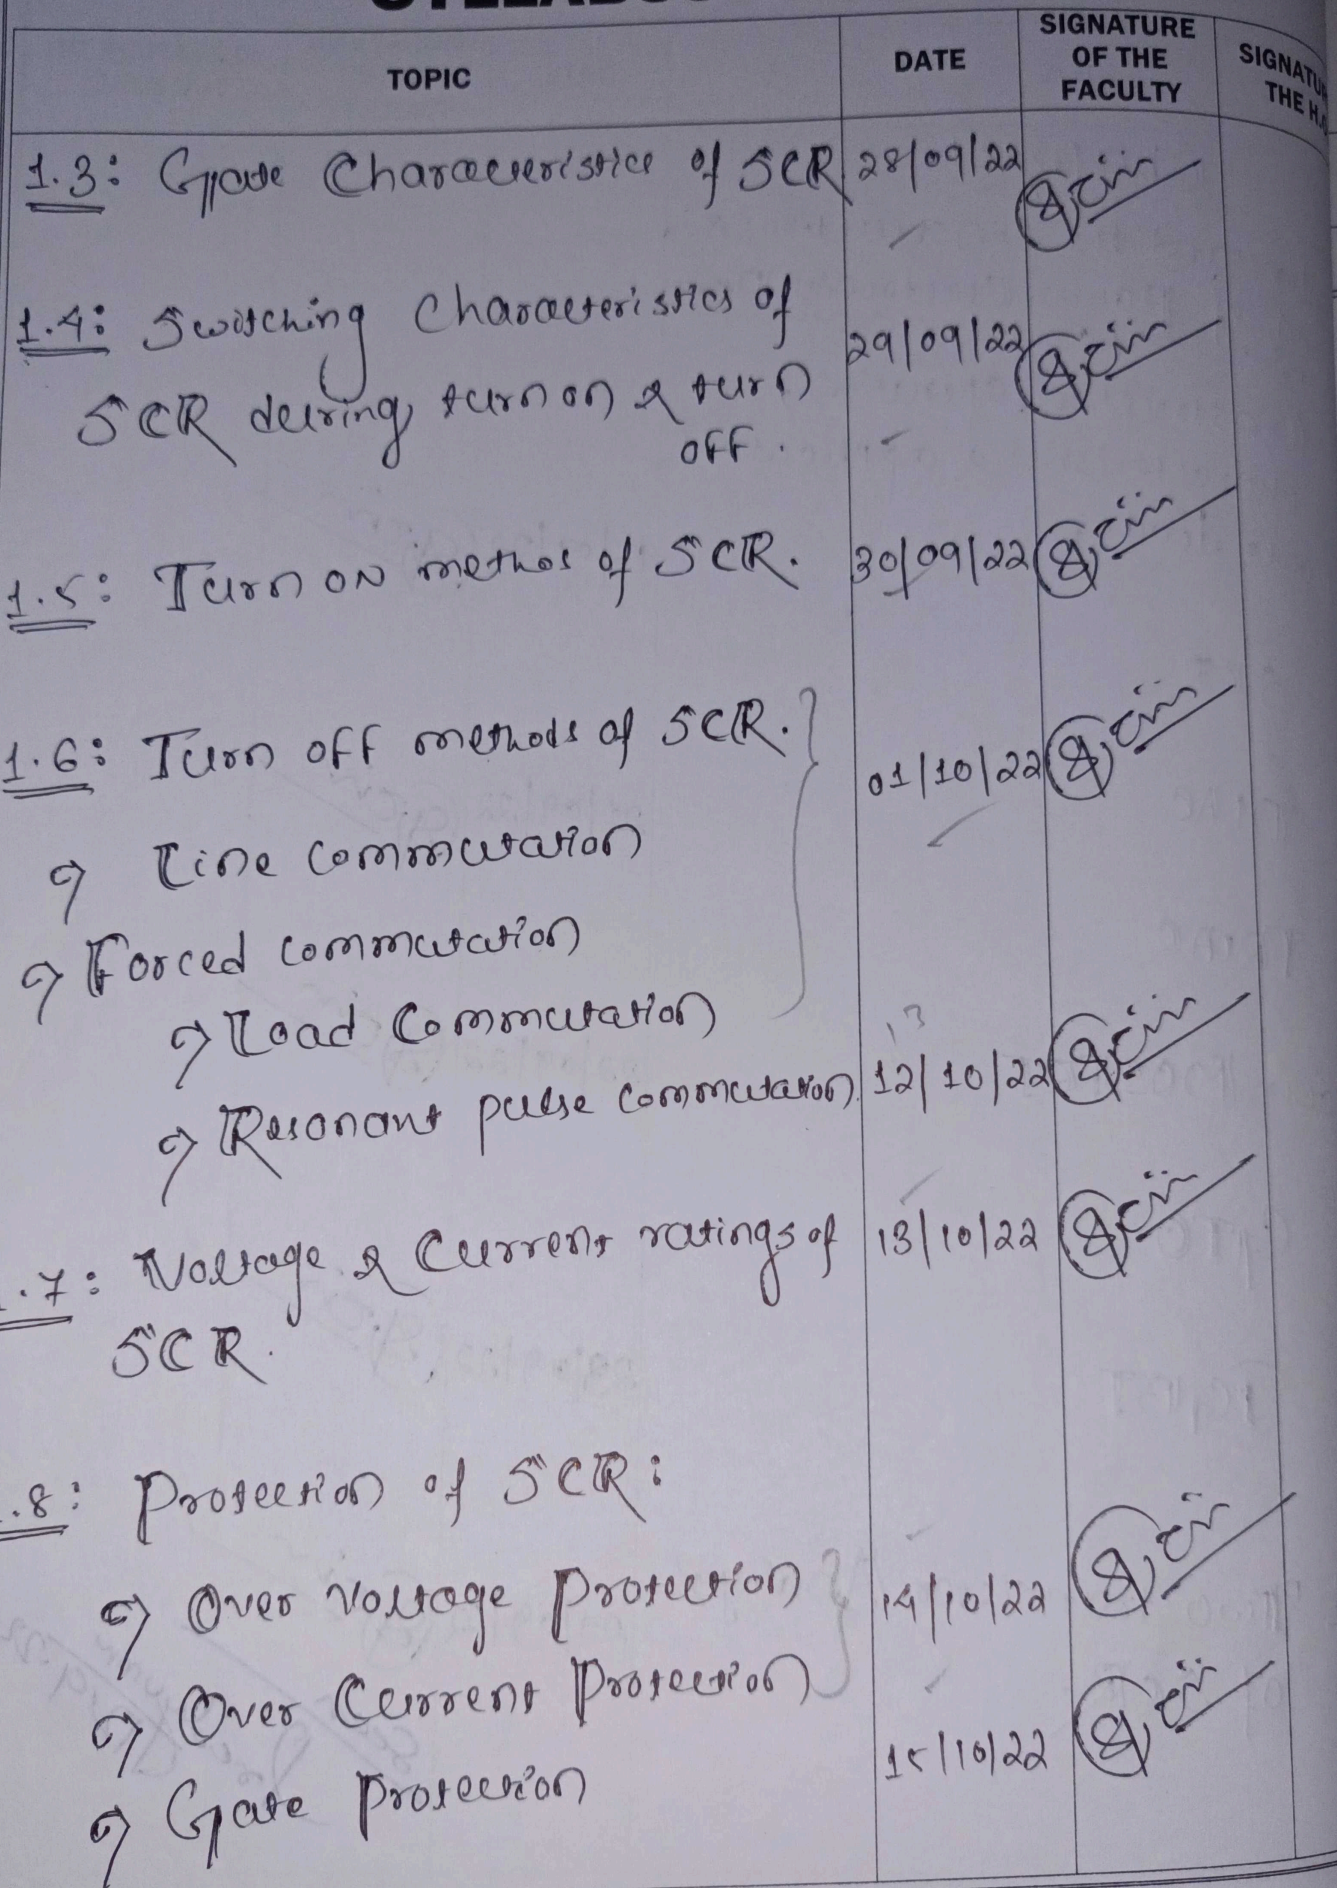 TOPIC
DATE
SIGNATURE
OF THE
FACULTY
1.3: Gate Characteristics of SCR 28/09/22
1.4: Switching Characteristics of
SCR during turn on & turn
off.
29/09/22
1.5: Turn ON methos of SCR. 30/09/22
1.6: Turn off methods of SCR.
01/10/22
Line Commutation
Forced commutation
Load Commutation
13
Resonant pulse commutation 12/10/22
.7: Voltage & Current ratings of 13/10/22
SCR.
.8: Protection of SCR:
Over Voltage Protection 14/10/22
Over Current Protection
15/10/22
Gate Protection